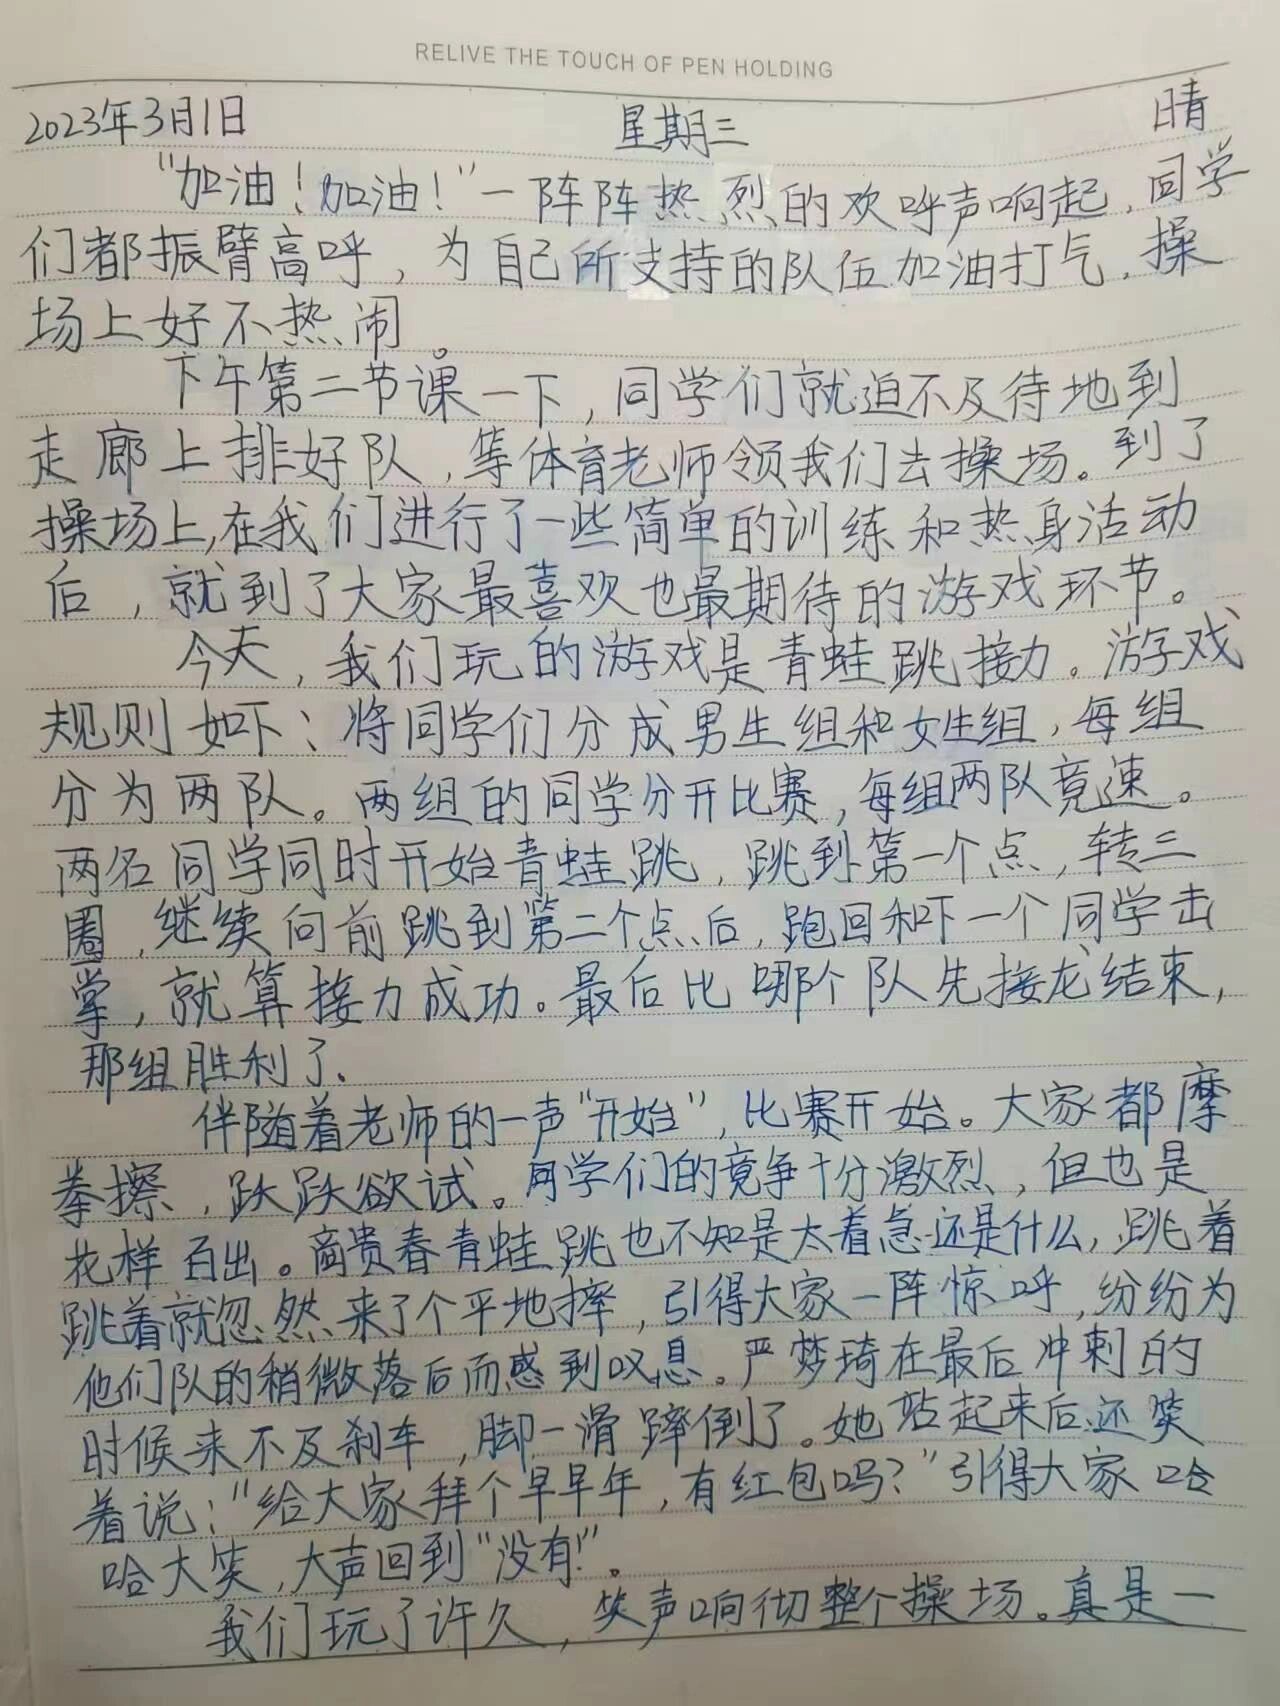 RELIVE THE TOUCH OF PEN HOLDING
2023年3月1日 星期三 晴
“加油！加油！”一阵阵热烈的欢呼声响起，同学
们都振臂高呼，为自己所支持的队伍加油打气，操
场上好不热闹。
下午第二节课一下，同学们就迫不及待地到
走廊上排好队，等体育老师领我们去操场。到了
操场上，在我们进行了一些简单的训练和热身活动
后，就到了大家最喜欢也最期待的游戏环节。
今天，我们玩的游戏是青蛙跳接力。游戏
规则如下：将同学们分成男生组和女生组，每组
分为两队。两组的同学分开比赛，每组两队竞速。
两名同学同时开始青蛙跳，跳到第一个点，转三
圈，继续向前跳到第二个点后，跑回和下一个同学击
掌，就算接力成功。最后比哪个队先接龙结束，
那组胜利了、
伴随着老师的一声“开始”，比赛开始。大家都摩
拳擦，跃跃欲试。同学们的竞争十分激烈，但也是
花样百出。商贵春青蛙跳也不知是太着急还是什么，跳着
跳着就忽然来了个平地摔，引得大家一阵惊呼，纷纷为
他们队的稍微落后而感到叹息。严梦琦在最后冲刺的
时候来不及刹车，脚一滑蹿倒了。她站起来后还笑
着说：“给大家拜个早早年，有红包吗？”引得大家哈
哈大笑，大声回到“没有！”。
我们玩了许久，笑声响彻整个操场。真是一